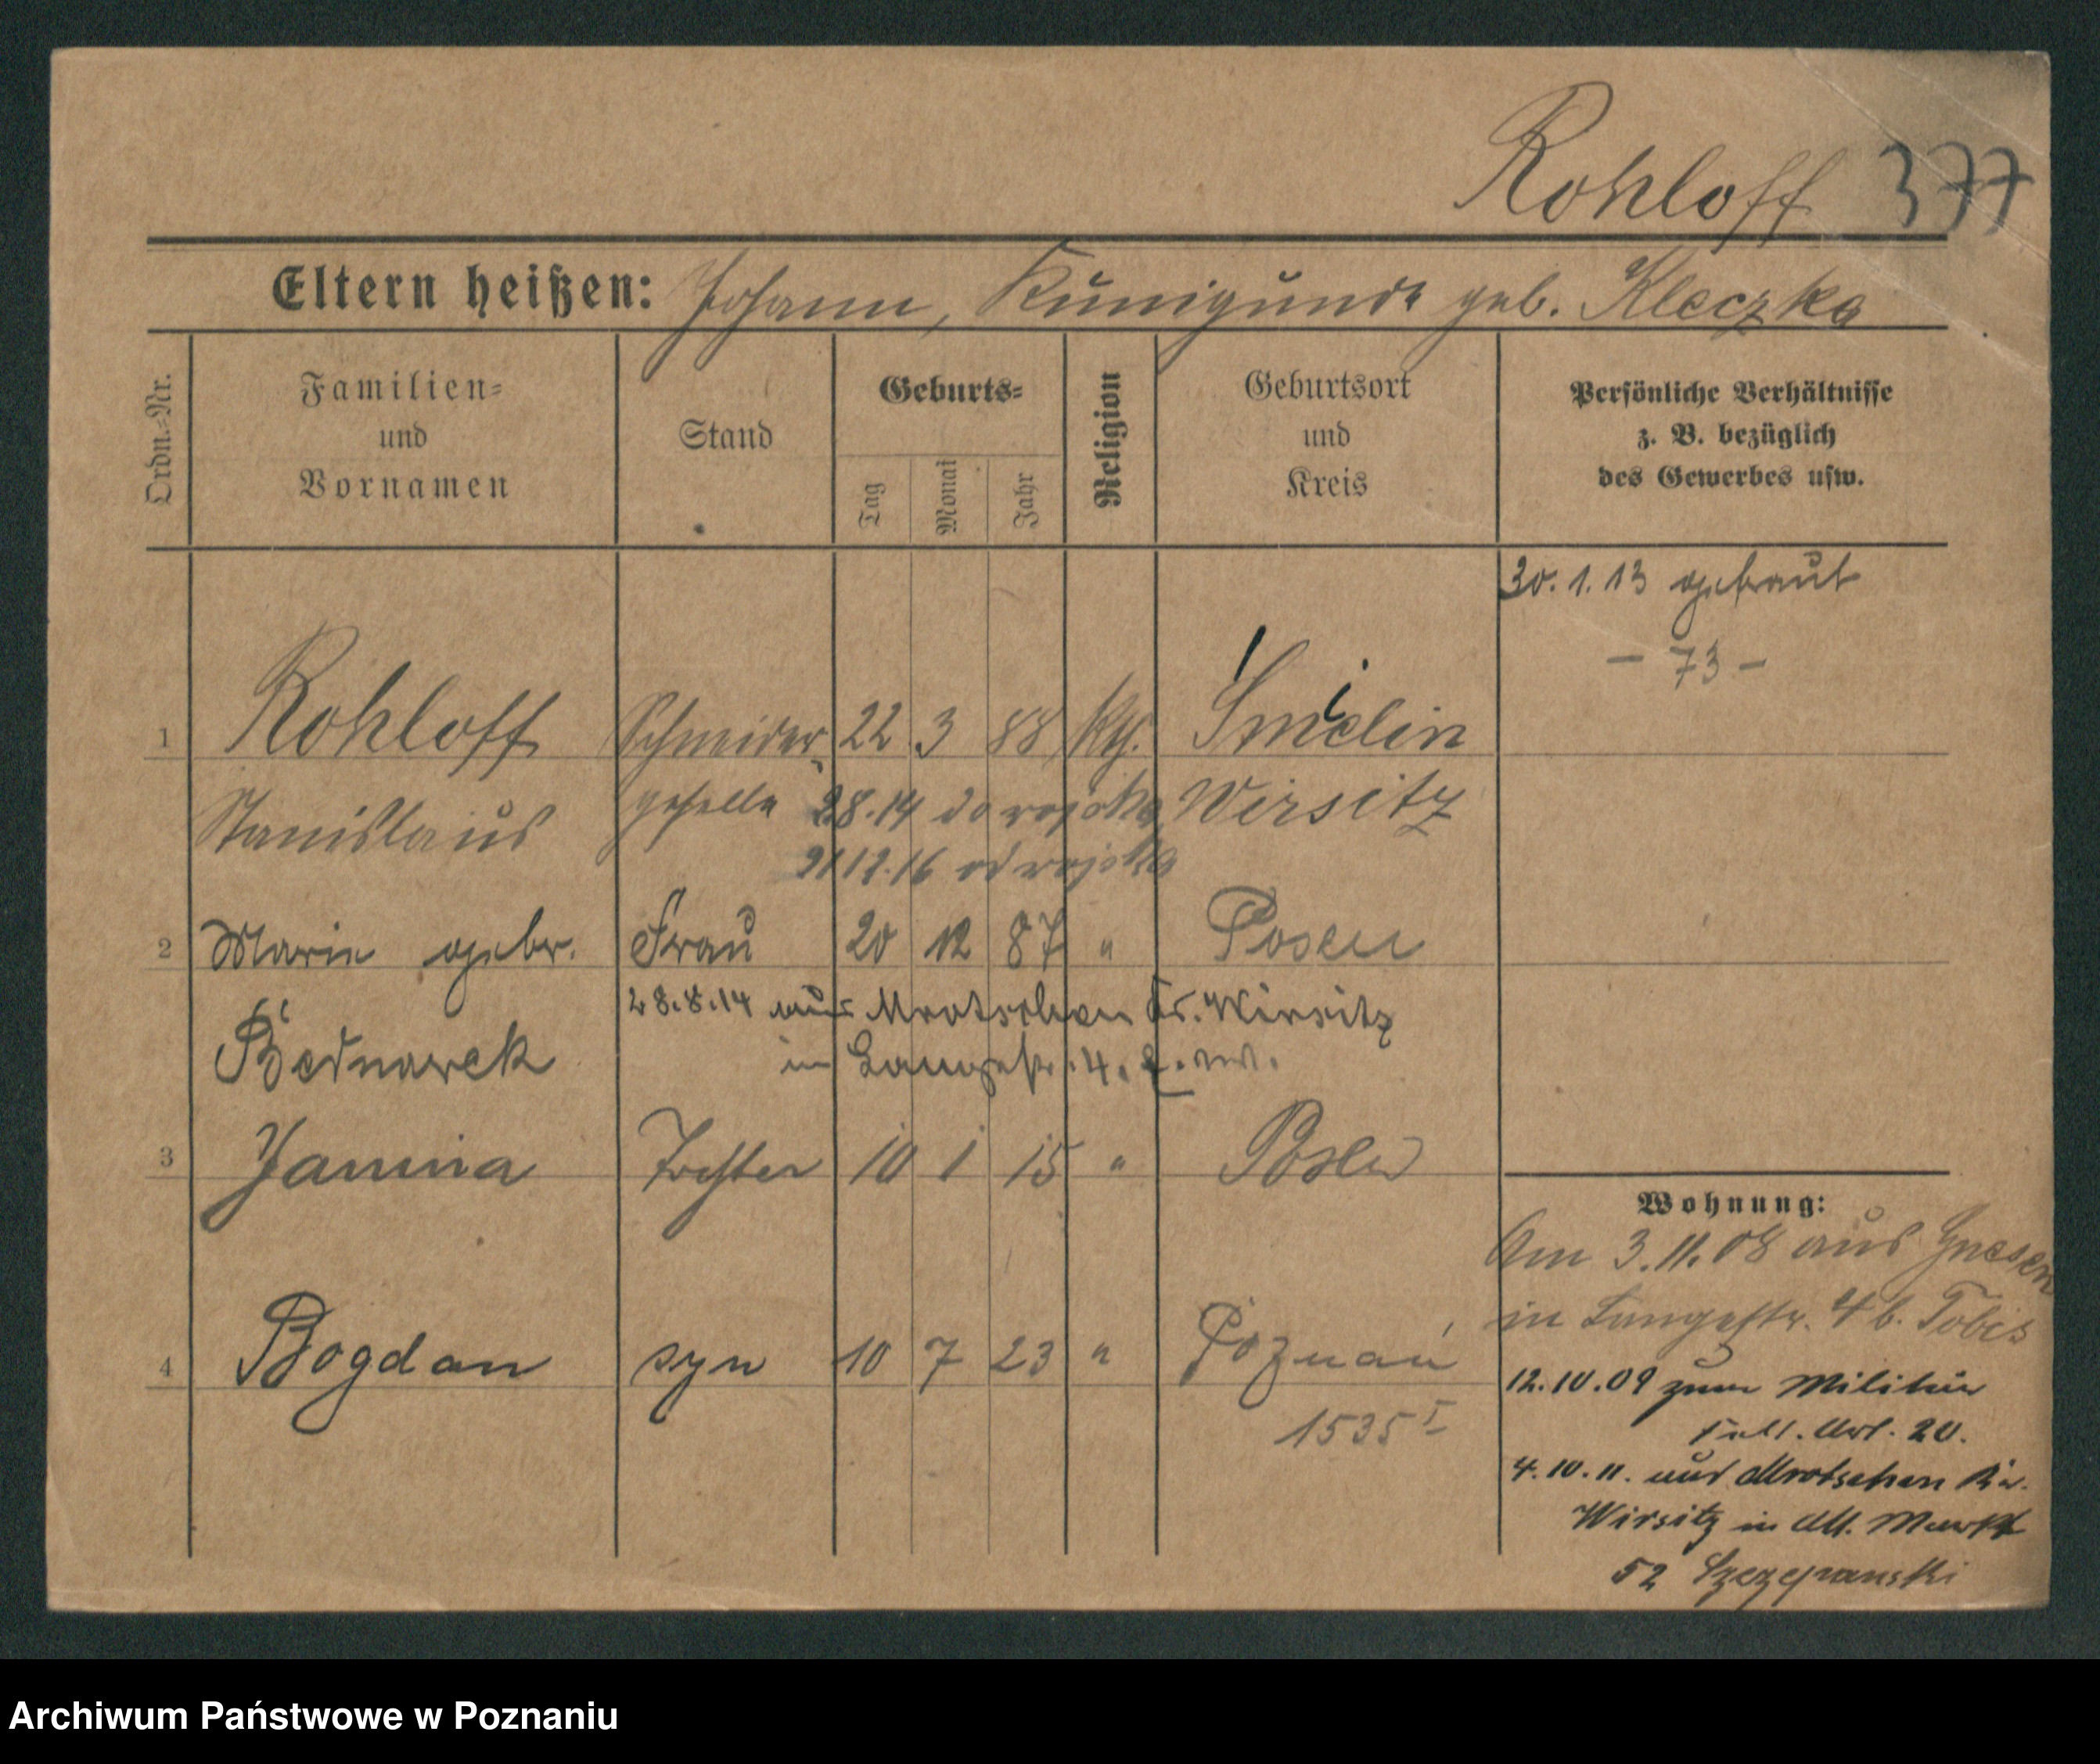 Rohloff 377
Eltern heißen: Johann, Kunigunde geb. Kleczka
Ordn.-Nr.
Familien-
und
Vornamen
Stand
Geburts-
Tag
Monat
Jahr
Religion
Geburtsort
und
Kreis
Persönliche Verhältnisse
z. B. bezüglich
des Gewerbes usw.
30.1.13 getraut
– 73 –
1 Rohloff Schneider 22 3 88 kth. Smielin
Stanislaus geselle 2.8.14 do wojska Wirsitz
21 12.16 od wojska
2 Marie gebr. Frau 20 12 87 " Posen
28.8.14 aus Mrotschen Kr. Wirsitz
Bednarek
in Langestr. 4.
3 Janina Tochter 10 1 15 " Posen
4 Bogdan syn 10 7 23 " Poznań
1535 I
Wohnung:
Am 3.11.08 aus Gnesen
in Langestr. 4 b. Tobis
12.10.09 zum Militär
Art. 20.
4.10.11. aus Mrotschen Kr.
Wirsitz in Alt. Markt
52 Szczepanski
Archiwum Państwowe w Poznaniu